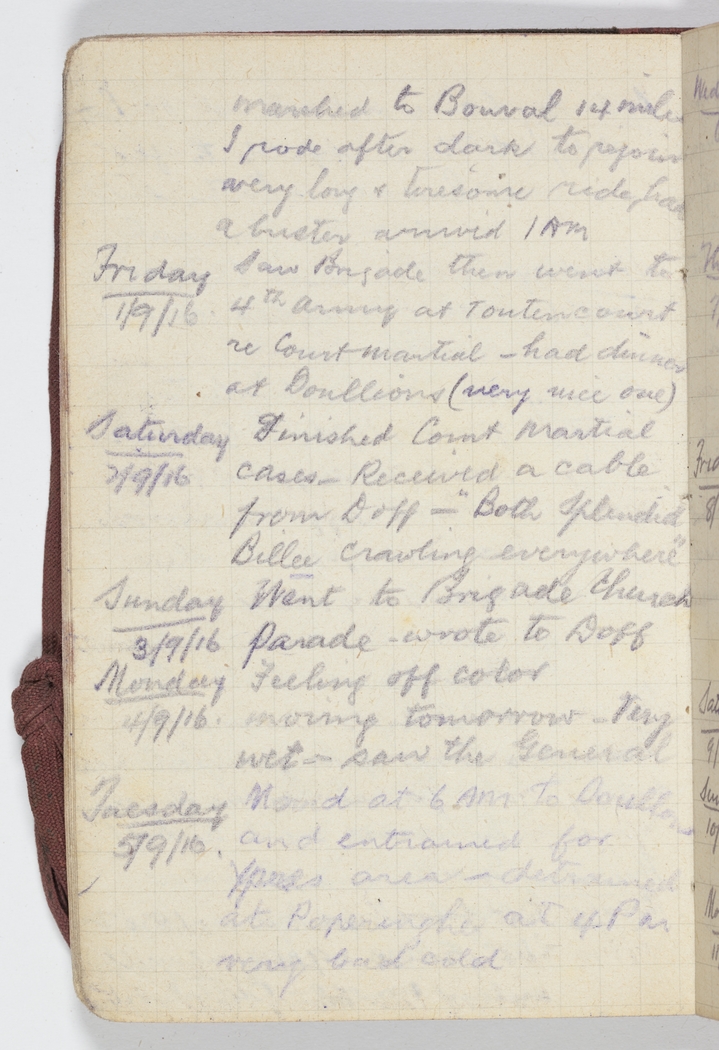 marched to Bouval 14 miles
I rode after dark to rejoin
very long & tiresome ride, had
a buster arrived 1 AM
Friday Saw Brigade then went to
1/9/16. 4th Army at Toutencourt
re Court martial - had dinner
at Doullions (very nice one)
Saturday Finished Court Martial
2/9/16 cases - Received a cable
from Doff - "Both splendid
Billee crawling everywhere"
Sunday Went to Brigade Church
3/9/16 Parade - wrote to Doff
Monday Feeling off color
4/9/16. moving tomorrow - Very
wet - saw the General
Tuesday Moved at 6 AM to
5/9/16. and entrained for
Ypres area - detrained
at Poperinghe at 4 PM
very bad cold